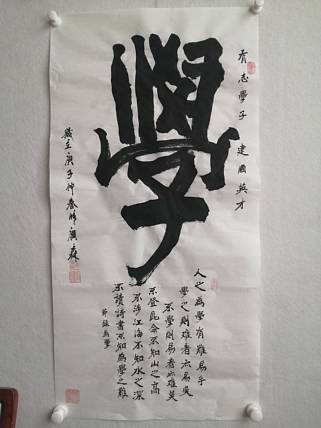 學
有志學子 建國英才
人之為學有難易乎
學之則難者亦易矣
不學則易者亦難矣
不登昆侖不知山之高
不涉江海不知水之深
不讀詩書不知為學之難
節錄為學
歲在庚子仲春時廣森